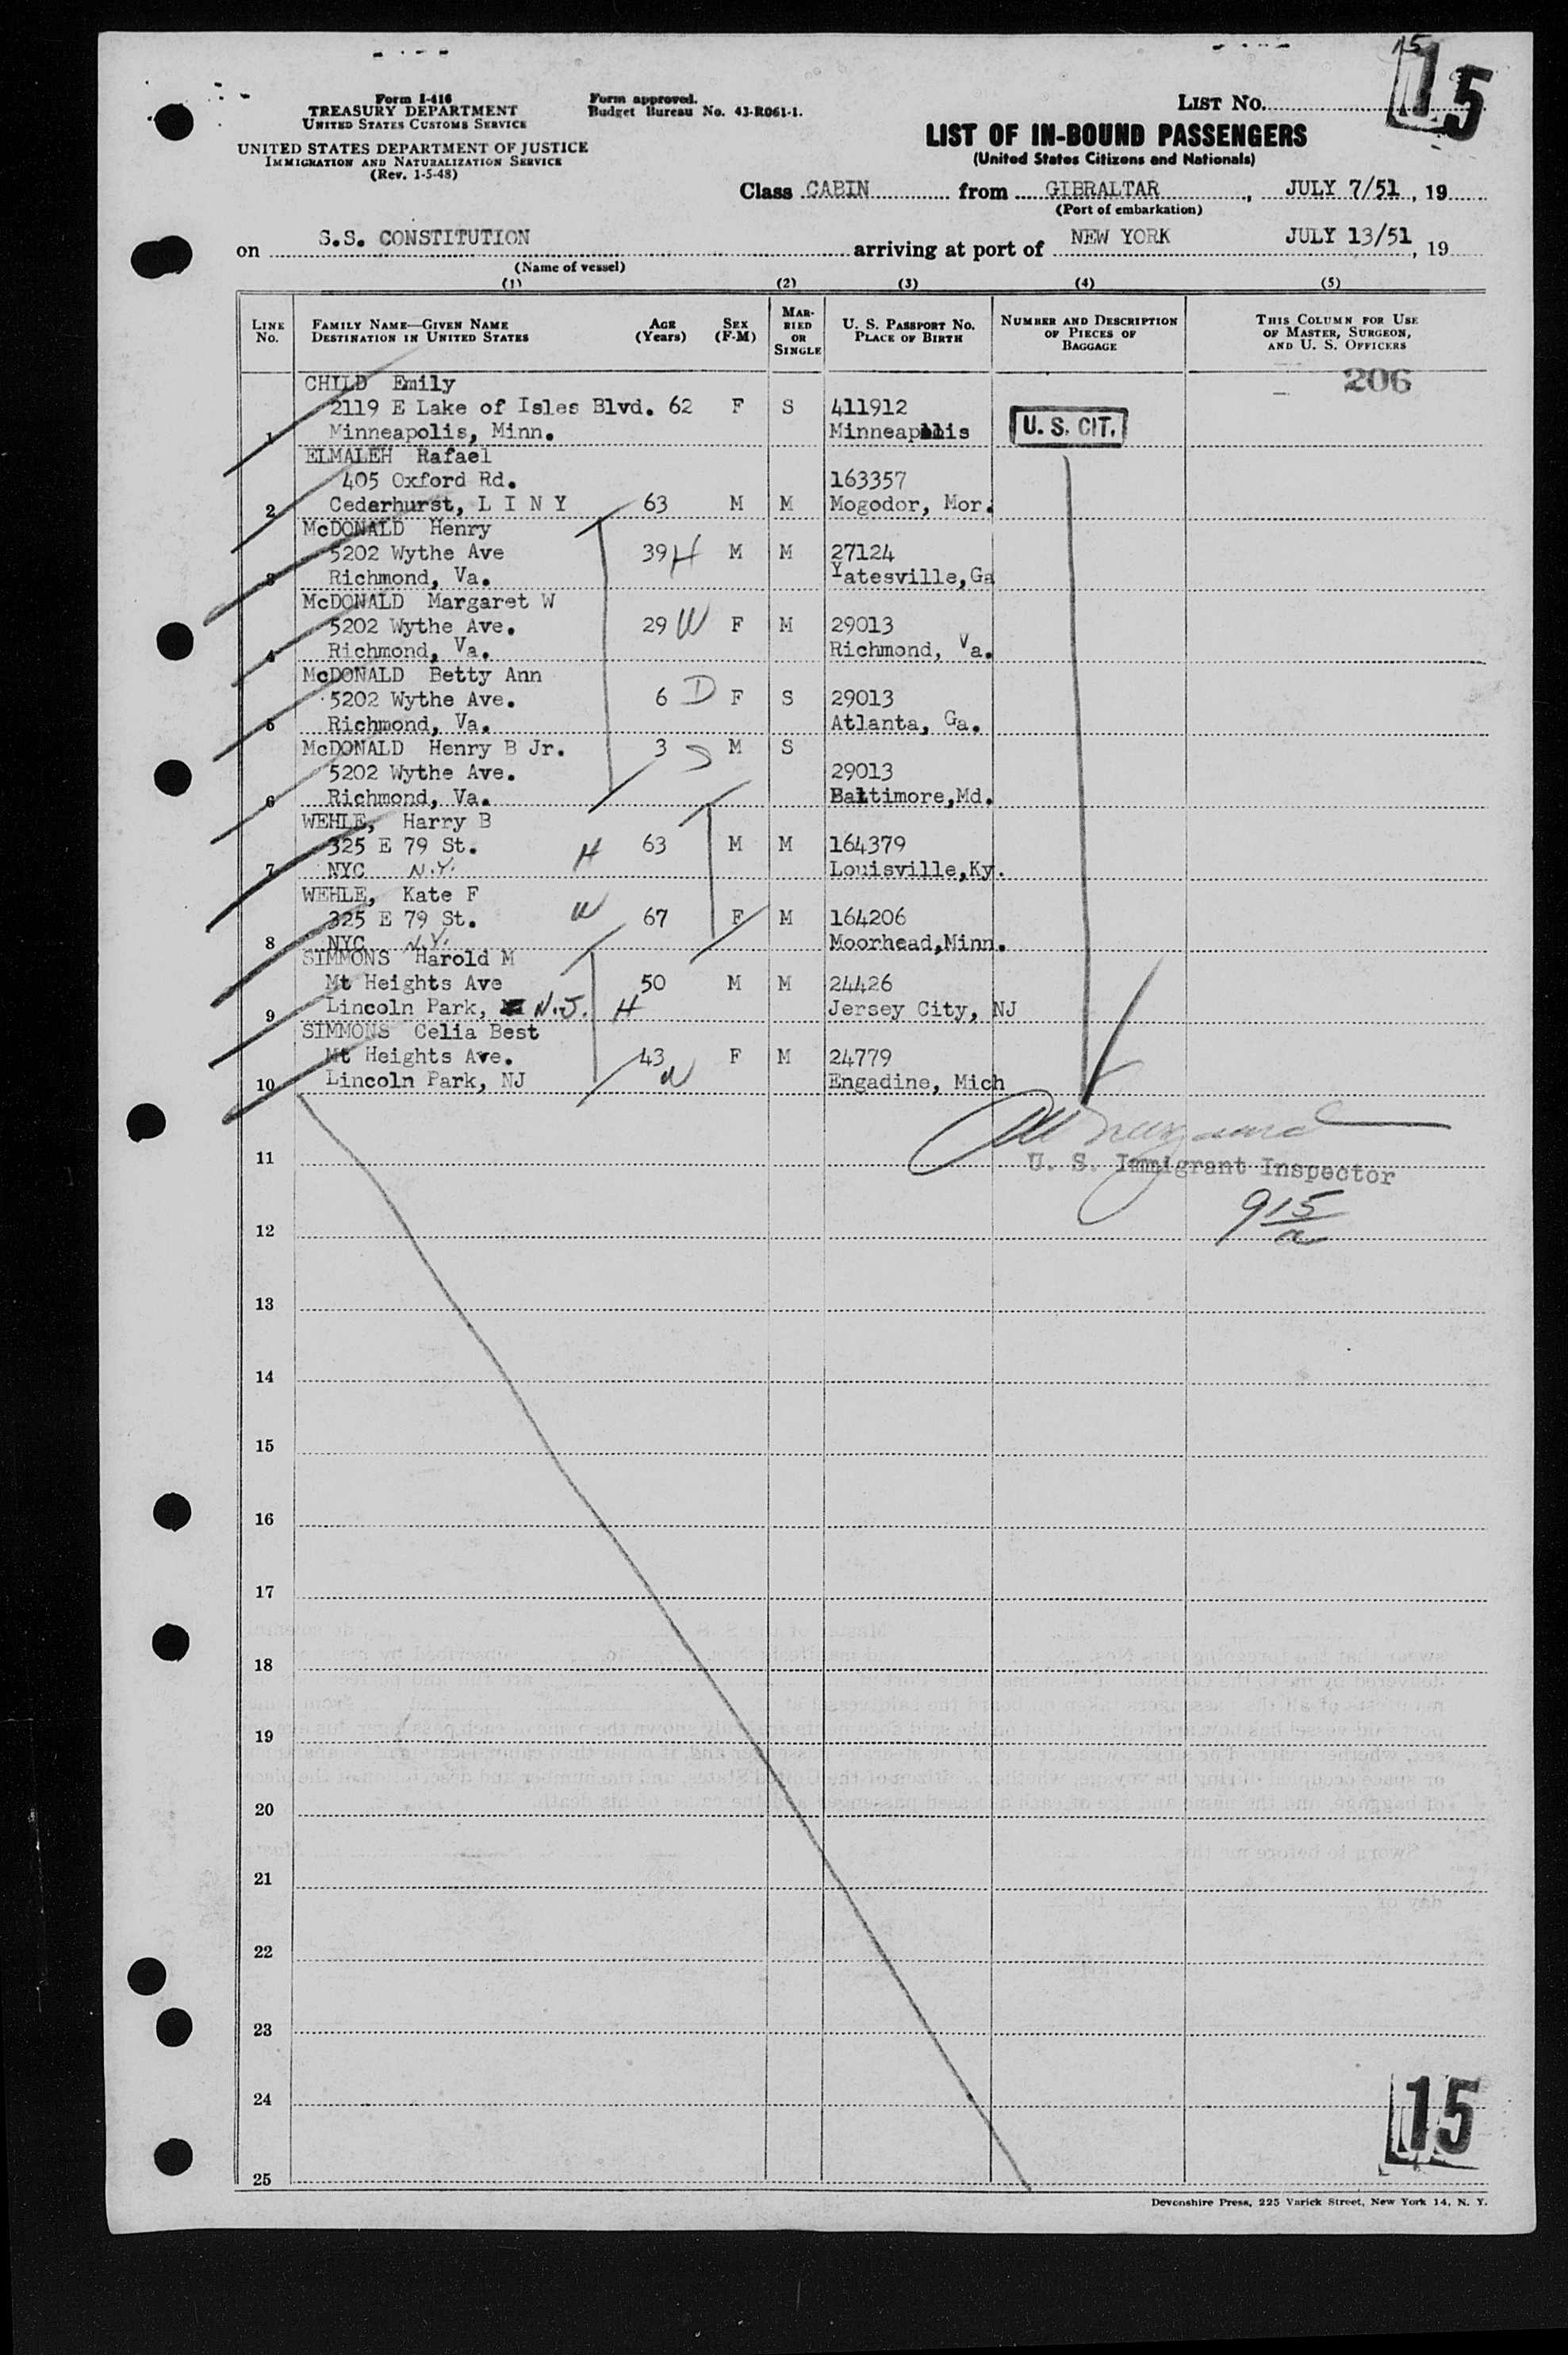 15
15
Form I-416
TREASURY DEPARTMENT
UNITED STATES CUSTOMS SERVICE
UNITED STATES DEPARTMENT OF JUSTICE
IMMIGRATION AND NATURALIZATION SERVICE
(Rev. 1-5-48)
Form approved.
Budget Bureau No. 43-R061-1.
LIST No.
LIST OF IN-BOUND PASSENGERS
(United States Citizens and Nationals)
Class CABIN from GIBRALTAR, JULY 7/51, 19
(Port of embarkation)
on S.S. CONSTITUTION arriving at port of NEW YORK JULY 13/51, 19
(Name of vessel)
(1) (2) (3) (4) (5)
LINE No. FAMILY NAME—GIVEN NAME DESTINATION IN UNITED STATES AGE (Years) SEX (F-M) MARRIED OR SINGLE U. S. PASSPORT NO. PLACE OF BIRTH NUMBER AND DESCRIPTION OF PIECES OF BAGGAGE THIS COLUMN FOR USE OF MASTER, SURGEON, AND U. S. OFFICERS
206
CHILD Emily
2119 E Lake of Isles Blvd. 62 F S 411912
1 Minneapolis, Minn. Minneapolis U. S. CIT.
ELMALEH Rafael
405 Oxford Rd. 163357
2 Cedarhurst, L I N Y 63 M M Mogodor, Mor.
McDONALD Henry
5202 Wythe Ave 39 H M M 27124
3 Richmond, Va. Yatesville,Ga
McDONALD Margaret W
5202 Wythe Ave. 29 W F M 29013
4 Richmond, Va. Richmond, Va.
McDONALD Betty Ann
5202 Wythe Ave. 6 D F S 29013
5 Richmond, Va. Atlanta, Ga.
McDONALD Henry B Jr. 3 S M S
5202 Wythe Ave. 29013
6 Richmond, Va. Baltimore,Md.
WEHLE, Harry B
325 E 79 St. H 63 M M 164379
7 NYC N.Y. Louisville,Ky.
WEHLE, Kate F
325 E 79 St. W 67 F M 164206
8 NYC N.Y. Moorhead,Minn.
SIMMONS Harold M
Mt Heights Ave 50 M M 24426
9 Lincoln Park, N.J. H Jersey City, NJ
SIMMONS Celia Best
Mt Heights Ave. 43 F M 24779
10 Lincoln Park, NJ W Engadine, Mich
11
U. S. Immigrant Inspector
915
12
13
14
15
16
17
18
19
20
21
22
23
24
25
15
Devonshire Press, 225 Varick Street, New York 14, N. Y.